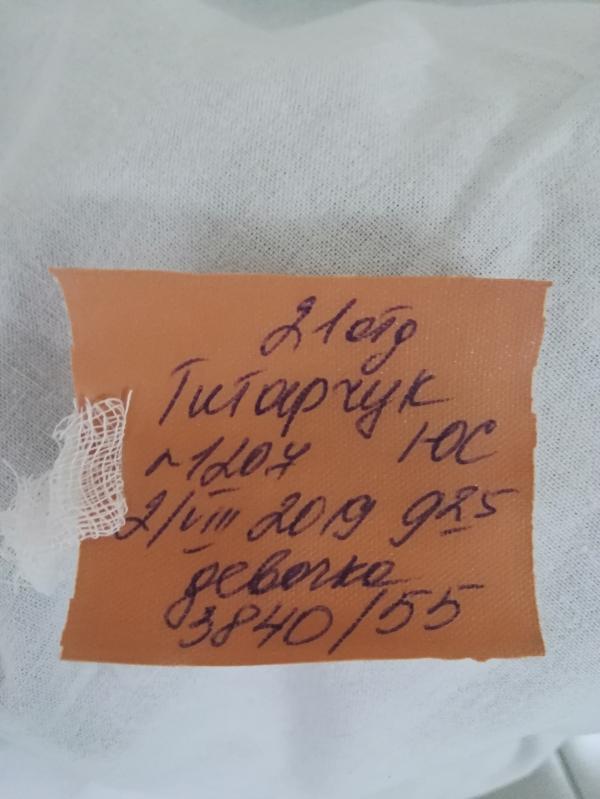 21 отд
Титарчук
~1207 ЮС
2/VIII 2019 9 25
девочка
3840/55